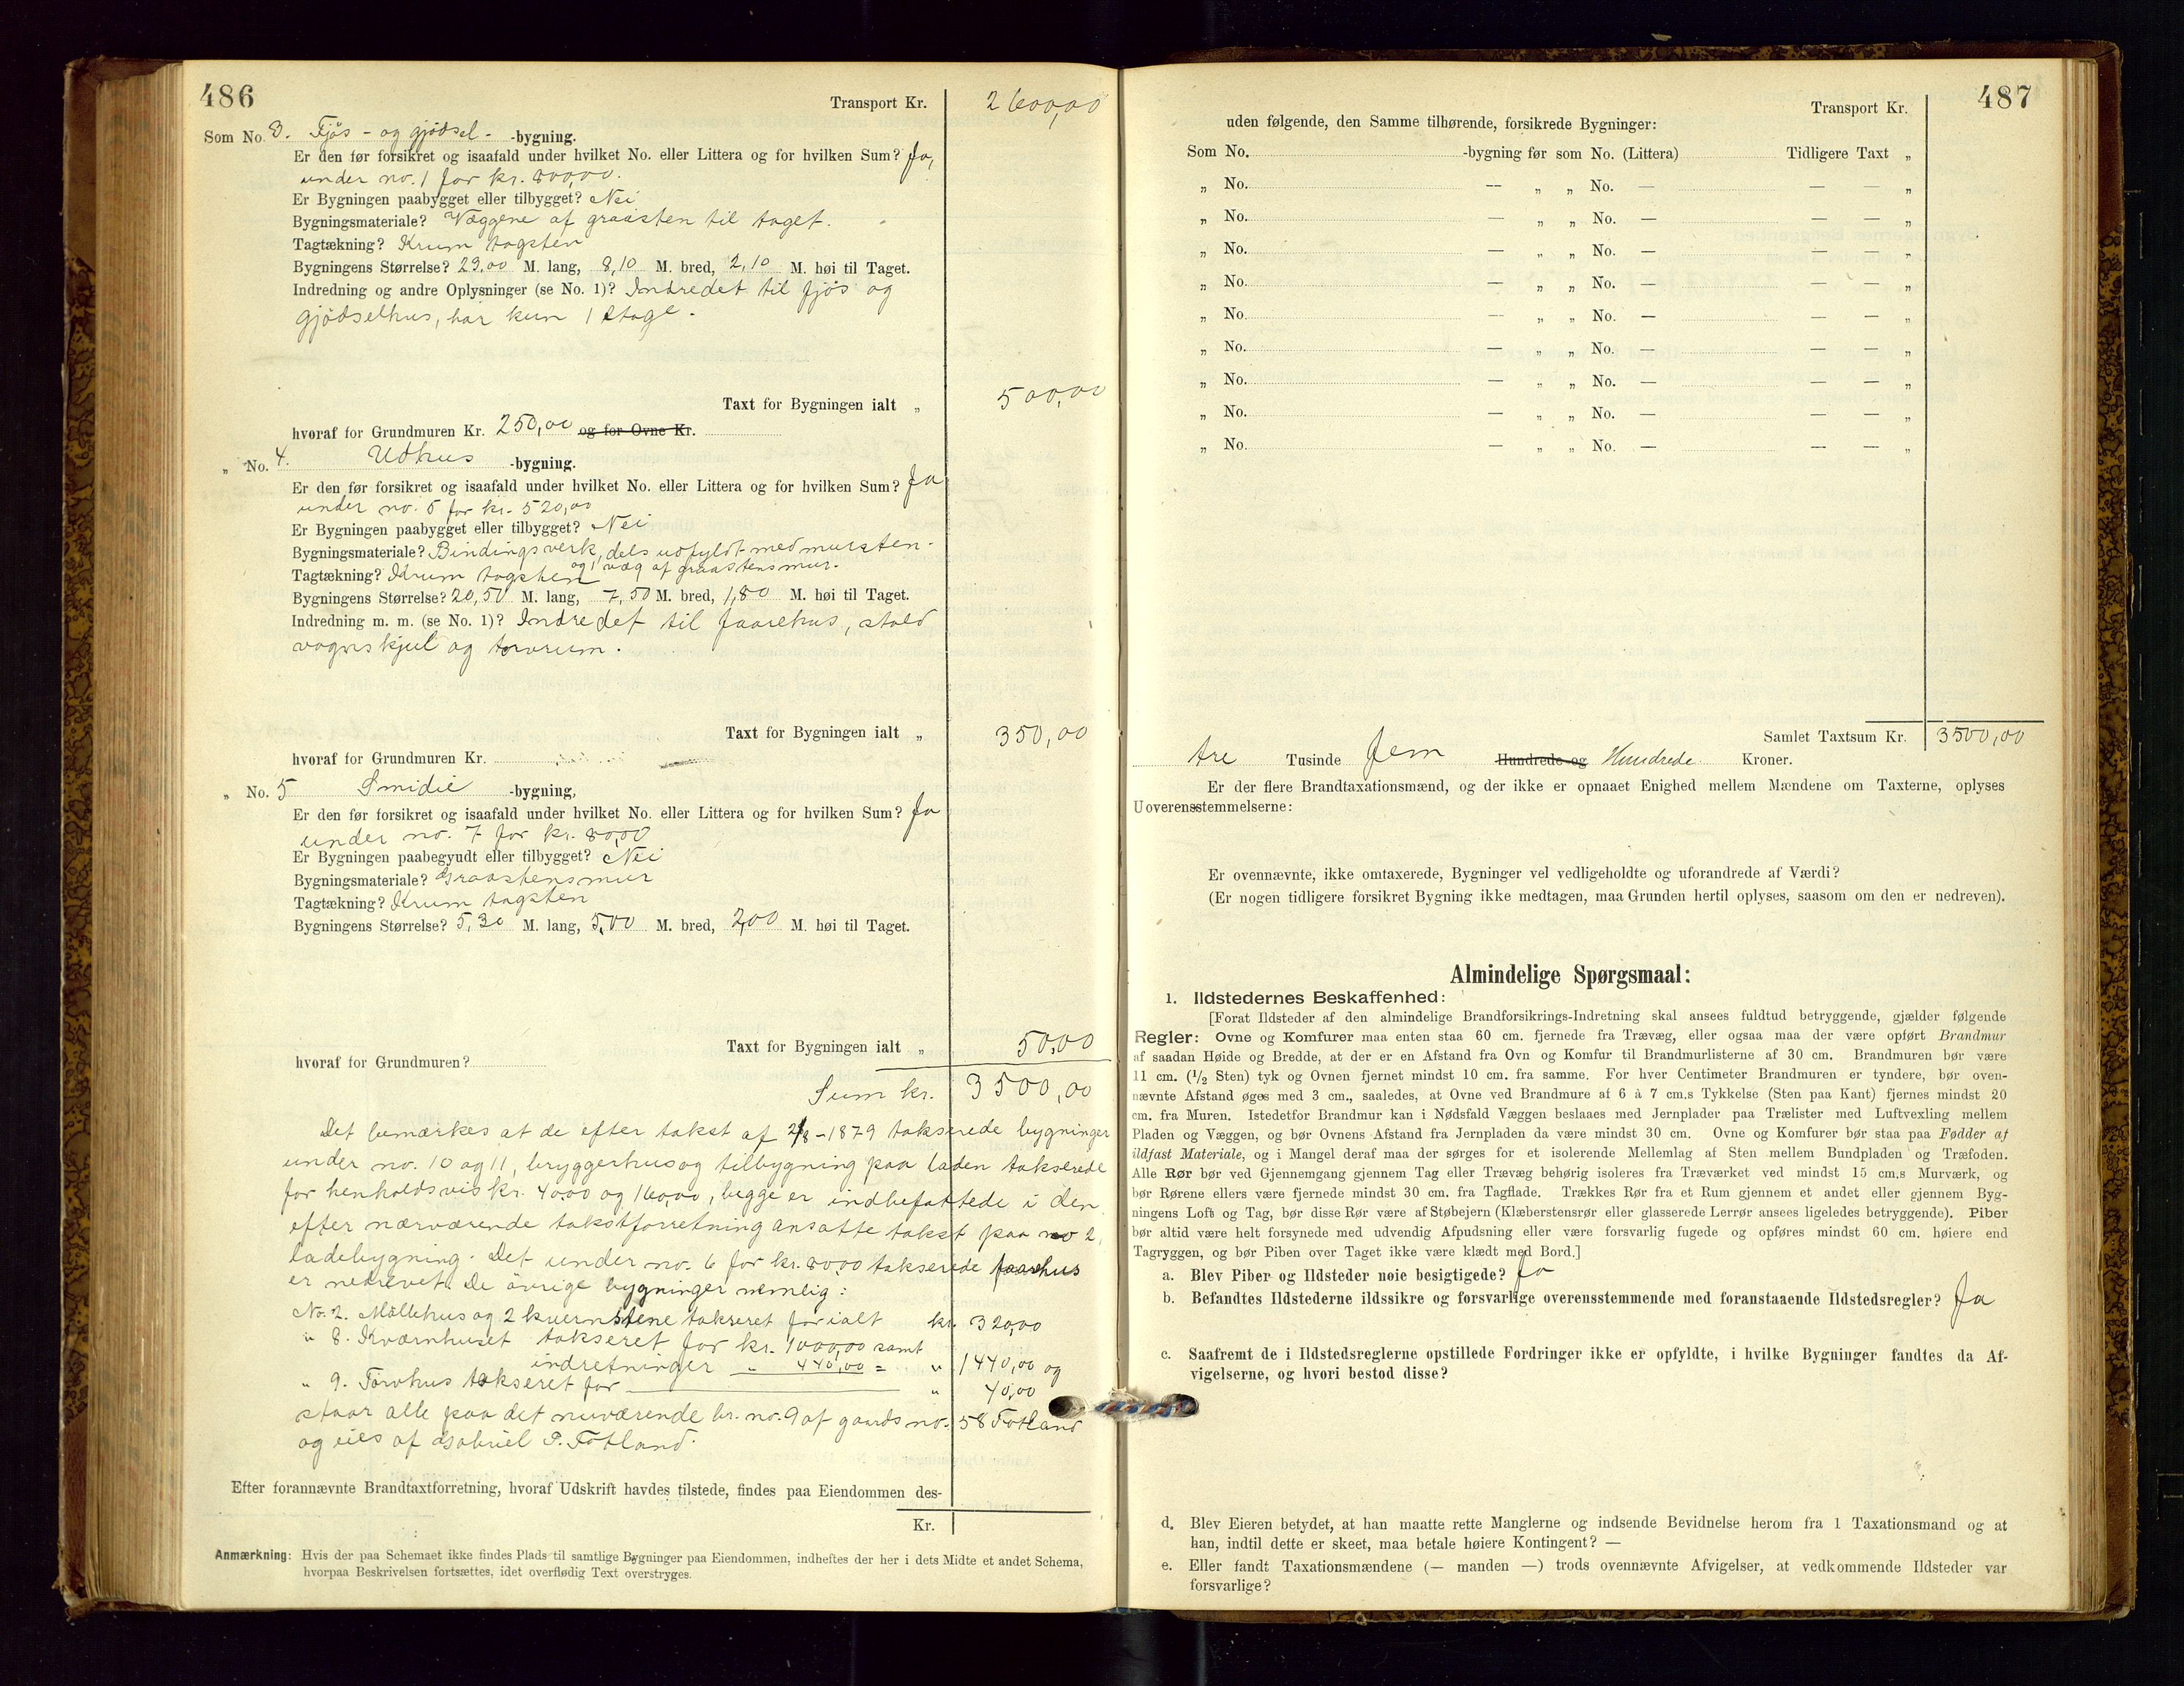 486
Transport Kr. 2600,00
Som No. 3. Fjös - og gjödsel- -bygning.
Er den før forsikret og isaafald under hvilket No. eller Littera og for hvilken Sum? Ja,
under no. 1 for kr. 800,00.
Er Bygningen paabygget eller tilbygget? Nei
Bygningsmateriale? Væggene af graasten til taget.
Tagtækning? Krum tagsten
Bygningens Størrelse? 29,00 M. lang, 8,10 M. bred, 2,10 M. høi til Taget.
Indredning og andre Oplysninger (se No. 1)? Indredet til fjös og
gjödselhus, har kun 1 etage.
Taxt for Bygningen ialt „ 500,00
hvoraf for Grundmuren Kr. 250,00 og for Ovne Kr.
„ No. 4. Udhus -bygning.
Er den før forsikret og isaafald under hvilket No. eller Littera og for hvilken Sum? Ja
under no. 5 for kr. 520,00
Er Bygningen paabygget eller tilbygget? Nei
Bygningsmateriale? Bindingsverk, dels udfyldt med mursten.
og 1 væg af graastensmur.
Tagtækning? Krum tagsten
Bygningens Størrelse? 20,50 M. lang, 7,50 M. bred, 1,80 M. høi til Taget.
Indredning m. m. (se No. 1)? Indredet til faarehus, stald
vognskjul og torvrum.
Taxt for Bygningen ialt „ 350,00
hvoraf for Grundmuren Kr.
„ No. 5 Smidie -bygning,
Er den før forsikret og isaafald under hvilket No. eller Littera og for hvilken Sum? Ja
under no. 7 for kr. 80,00
Er Bygningen paabegyudt eller tilbygget? Nei
Bygningsmateriale? Graastensmur
Tagtækning? Krum tagsten
Bygningens Størrelse? 5,30 M. lang, 5,00 M. bred, 2,00 M. høi til Taget.
Taxt for Bygningen ialt „ 50,00
hvoraf for Grundmuren?
Sum kr. 3500,00
Det bemærkes at de efter takst af 2/8-1879 takserede bygninger
under no. 10 og 11, bryggerhus og tilbygning paa laden takserede
for henholdsvis kr. 40,00 og 160,00, begge er indbefattede i den
efter nærværende takstforretning ansatte takst paa no 2,
ladebygning. Det under no. 6 for kr. 80,00 takserede faarehus
er nedrevet. De övrige bygninger nemlig:
No. 2. Möllehus og 2 kuernstene takseret for ialt kr. 320,00
„ 8. Kværnhuset takseret for kr. 1000,00 samt
indretninger „ 440,00 = „ 1440,00 og
„ 9. Törvhus takseret for „ 40,00
staar alle paa det nuværende br. no. 9 af gaards no. 58 Fotland
og eies af Gabriel P. Fotland.
Efter forannævnte Brandtaxtforretning, hvoraf Udskrift havdes tilstede, findes paa Eiendommen des-
Kr.
Anmærkning: Hvis der paa Schemaet ikke findes Plads til samtlige Bygninger paa Eiendommen, indheftes der her i dets Midte et andet Schema,
hvorpaa Beskrivelsen fortsættes, idet overflødig Text overstryges.
487
Transport Kr.
uden følgende, den Samme tilhørende, forsikrede Bygninger:
Som No. -bygning før som No. (Littera) Tidligere Taxt „
„ No. — „ „ No. — — — „
„ No. — „ „ No. — — — „
„ No. — „ „ No. — — — „
„ No. — „ „ No. — — — „
„ No. — „ „ No. — — — „
„ No. — „ „ No. — — — „
„ No. — „ „ No. — — — „
„ No. — „ „ No. — — — „
„ No. — „ „ No. — — — „
Samlet Taxtsum Kr. 3500,00
tre Tusinde fem Hundrede og Hundrede Kroner.
Er der flere Brandtaxationsmænd, og der ikke er opnaaet Enighed mellem Mændene om Taxterne, oplyses
Uoverensstemmelserne:
Er ovennævnte, ikke omtaxerede, Bygninger vel vedligeholdte og uforandrede af Værdi?
(Er nogen tidligere forsikret Bygning ikke medtagen, maa Grunden hertil oplyses, saasom om den er nedreven).
Almindelige Spørgsmaal:
1. Ildstedernes Beskaffenhed:
[Forat Ildsteder af den almindelige Brandforsikrings-Indretning skal ansees fuldtud betryggende, gjælder følgende
Regler: Ovne og Komfurer maa enten staa 60 cm. fjernede fra Trævæg, eller ogsaa maa der være opført Brandmur
af saadan Høide og Bredde, at der er en Afstand fra Ovn og Komfur til Brandmurlisterne af 30 cm. Brandmuren bør være
11 cm. (1/2 Sten) tyk og Ovnen fjernet mindst 10 cm. fra samme. For hver Centimeter Brandmuren er tyndere, bør oven-
nævnte Afstand øges med 3 cm., saaledes, at Ovne ved Brandmure af 6 à 7 cm.s Tykkelse (Sten paa Kant) fjernes mindst 20
cm. fra Muren. Istedetfor Brandmur kan i Nødsfald Væggen beslaaes med Jernplader paa Trælister med Luftvexling mellem
Pladen og Væggen, og bør Ovnens Afstand fra Jernpladen da være mindst 30 cm. Ovne og Komfurer bør staa paa Fødder af
ildfast Materiale, og i Mangel deraf maa der sørges for et isolerende Mellemlag af Sten mellem Bundpladen og Træfoden.
Alle Rør bør ved Gjennemgang gjennem Tag eller Trævæg behørig isoleres fra Træværket ved mindst 15 cm.s Murværk, og
bør Rørene ellers være fjernede mindst 30 cm. fra Tagflade. Trækkes Rør fra et Rum gjennem et andet eller gjennem Byg-
ningens Loft og Tag, bør disse Rør være af Støbejern (Klæberstensrør eller glasserede Lerrør ansees ligeledes betryggende). Piber
bør altid være helt forsynede med udvendig Afpudsning eller være forsvarlig fugede og opføres mindst 60 cm. høiere end
Tagryggen, og bør Piben over Taget ikke være klædt med Bord.]
a. Blev Piber og Ildsteder nøie besigtigede? Ja
b. Befandtes Ildstederne ildssikre og forsvarlige overensstemmende med foranstaaende Ildstedsregler? Ja
c. Saafremt de i Ildstedsreglerne opstillede Fordringer ikke er opfyldte, i hvilke Bygninger fandtes da Af-
vigelserne, og hvori bestod disse?
d. Blev Eieren betydet, at han maatte rette Manglerne og indsende Bevidnelse herom fra 1 Taxationsmand og at
han, indtil dette er skeet, maa betale høiere Kontingent? —
e. Eller fandt Taxationsmændene (— manden —) trods ovennævnte Afvigelser, at vedkommende Ildsteder var
forsvarlige?